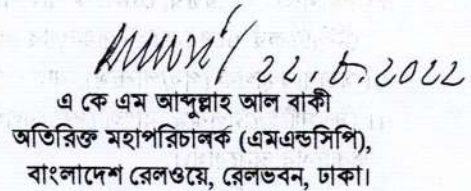 22.5.2022
এ কে এম আব্দুল্লাহ আল বাকী
অতিরিক্ত মহাপরিচালক (এমএন্ডসিপি),
বাংলাদেশ রেলওয়ে, রেলভবন, ঢাকা।